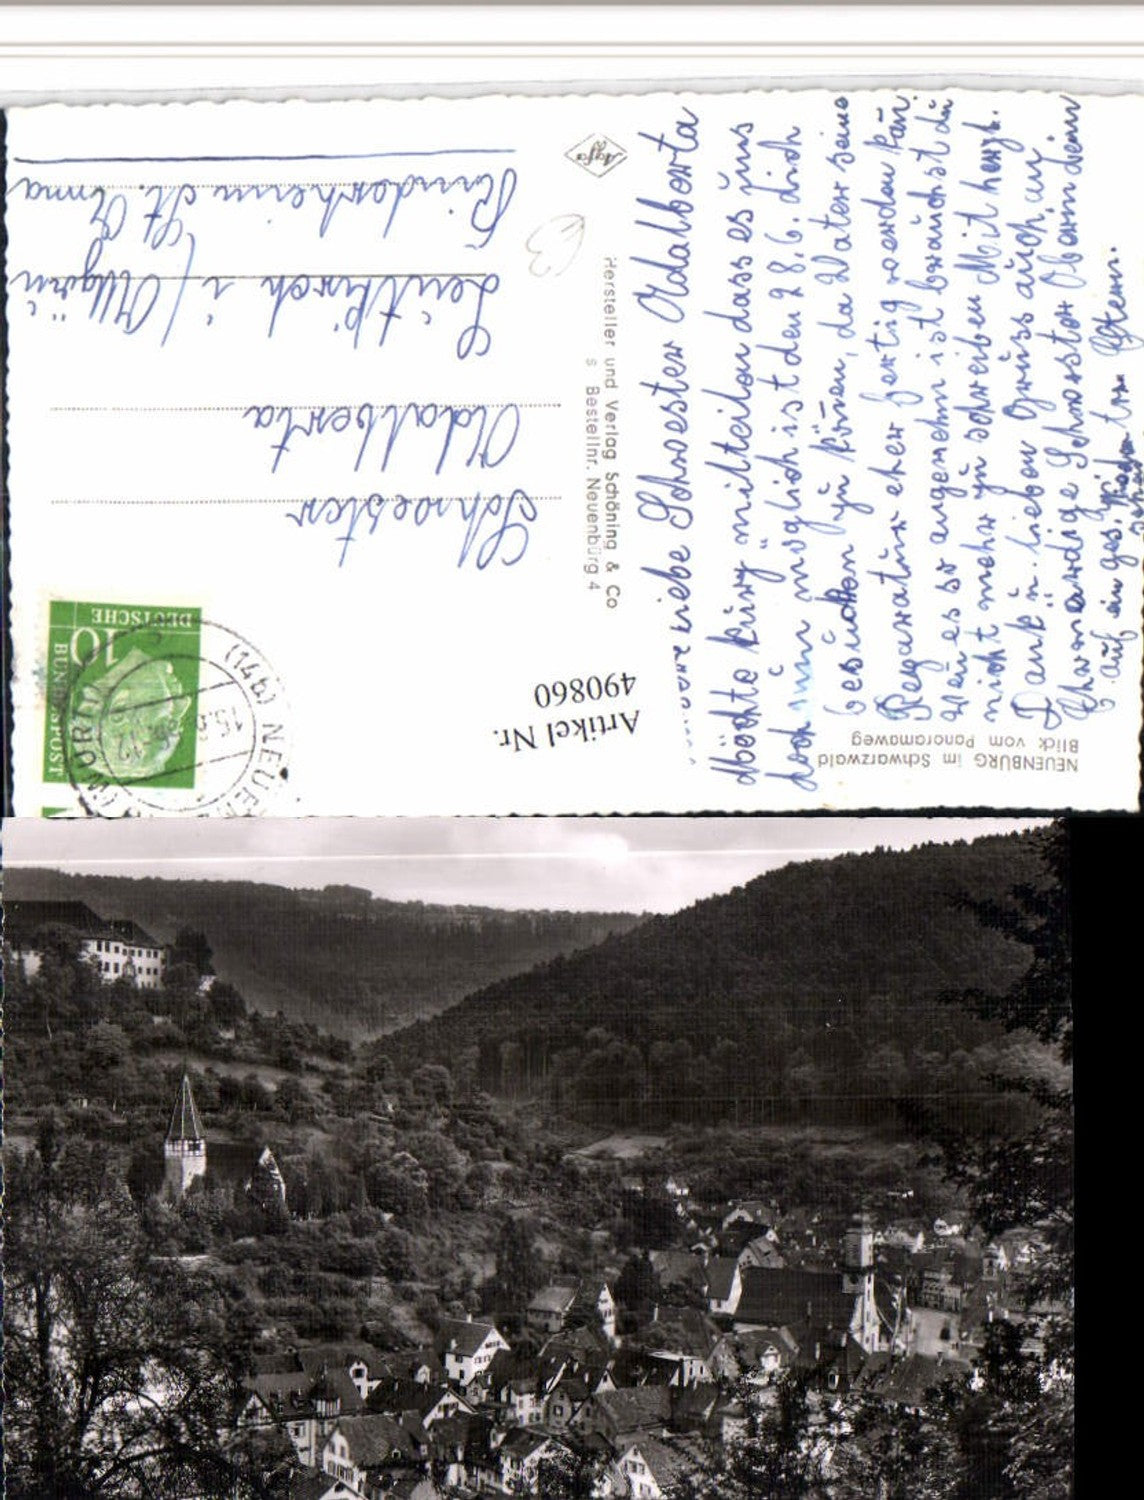 NEUENBÜRG im Schwarzwald
Blick vom Panoramaweg
liebe Schwester Odalberta
Möchte kurz mitteilen dass es uns
doch nun möglich ist den 28.6. dich
besuchen zu können, da Vater seine
Regaratur eher fertig werden kan
wen es so angenehm ist brauchst du
nicht mehr zu schreiben Mit herzl.
Dank u. lieben Gruss auch an
Ehrwürdige Schwester Oberin dein
auf ein ges.
Artikel Nr.
490860
Hersteller und Verlag Schöning & Co
s Bestellnr. Neuenbürg 4
Agfa
DEUTSCHE
BUNDESPOST
10
(14b) NEUEN
(WÜRTT
Schwester
Odalberta
Leutkirch i/Allgäu
Kinderheim St. Anna